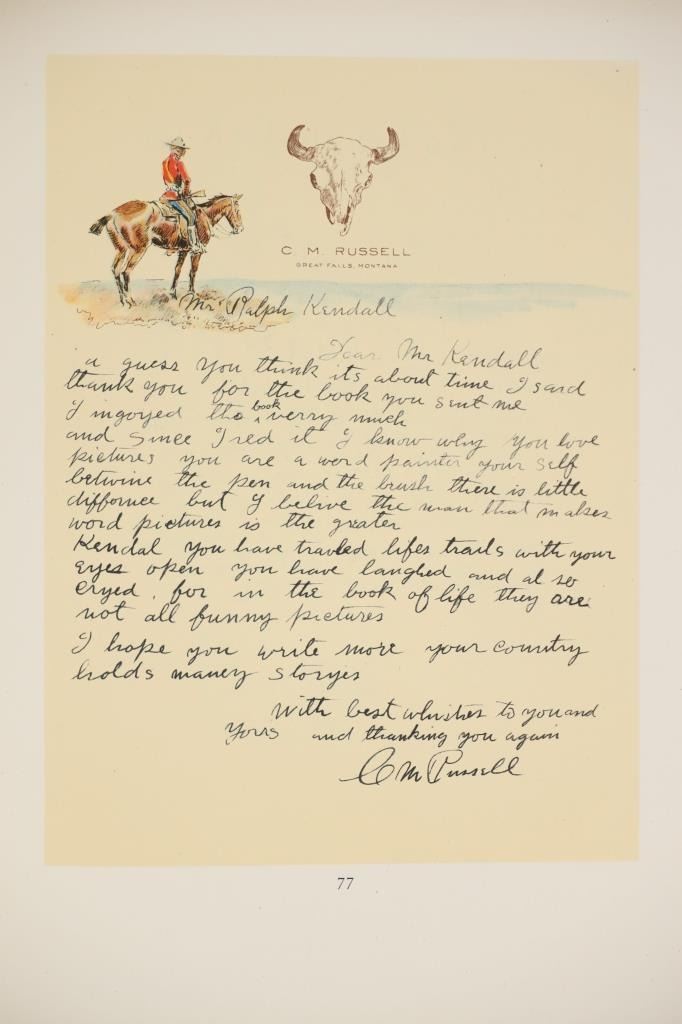 C. M. RUSSELL
GREAT FALLS, MONTANA
Mr Ralph Kendall
Dear Mr Kendall
a guess you think its about time I said
thank you for the book you sent me
I ingoyed the book verry much
and since I red it I know why you love
pictures you are a word painter your self
betwine the pen and the brush there is little
differnce but I belive the man that makes
word pictures is the grater
Kendal you have travled lifes trails with your
eyes open you have laughed and al so
cryed. for in the book of life they are
not all funny pictures
I hope you write more your country
holds maney storyes
With best whishes to you and
yorrs and thanking you again
CM Russell
77